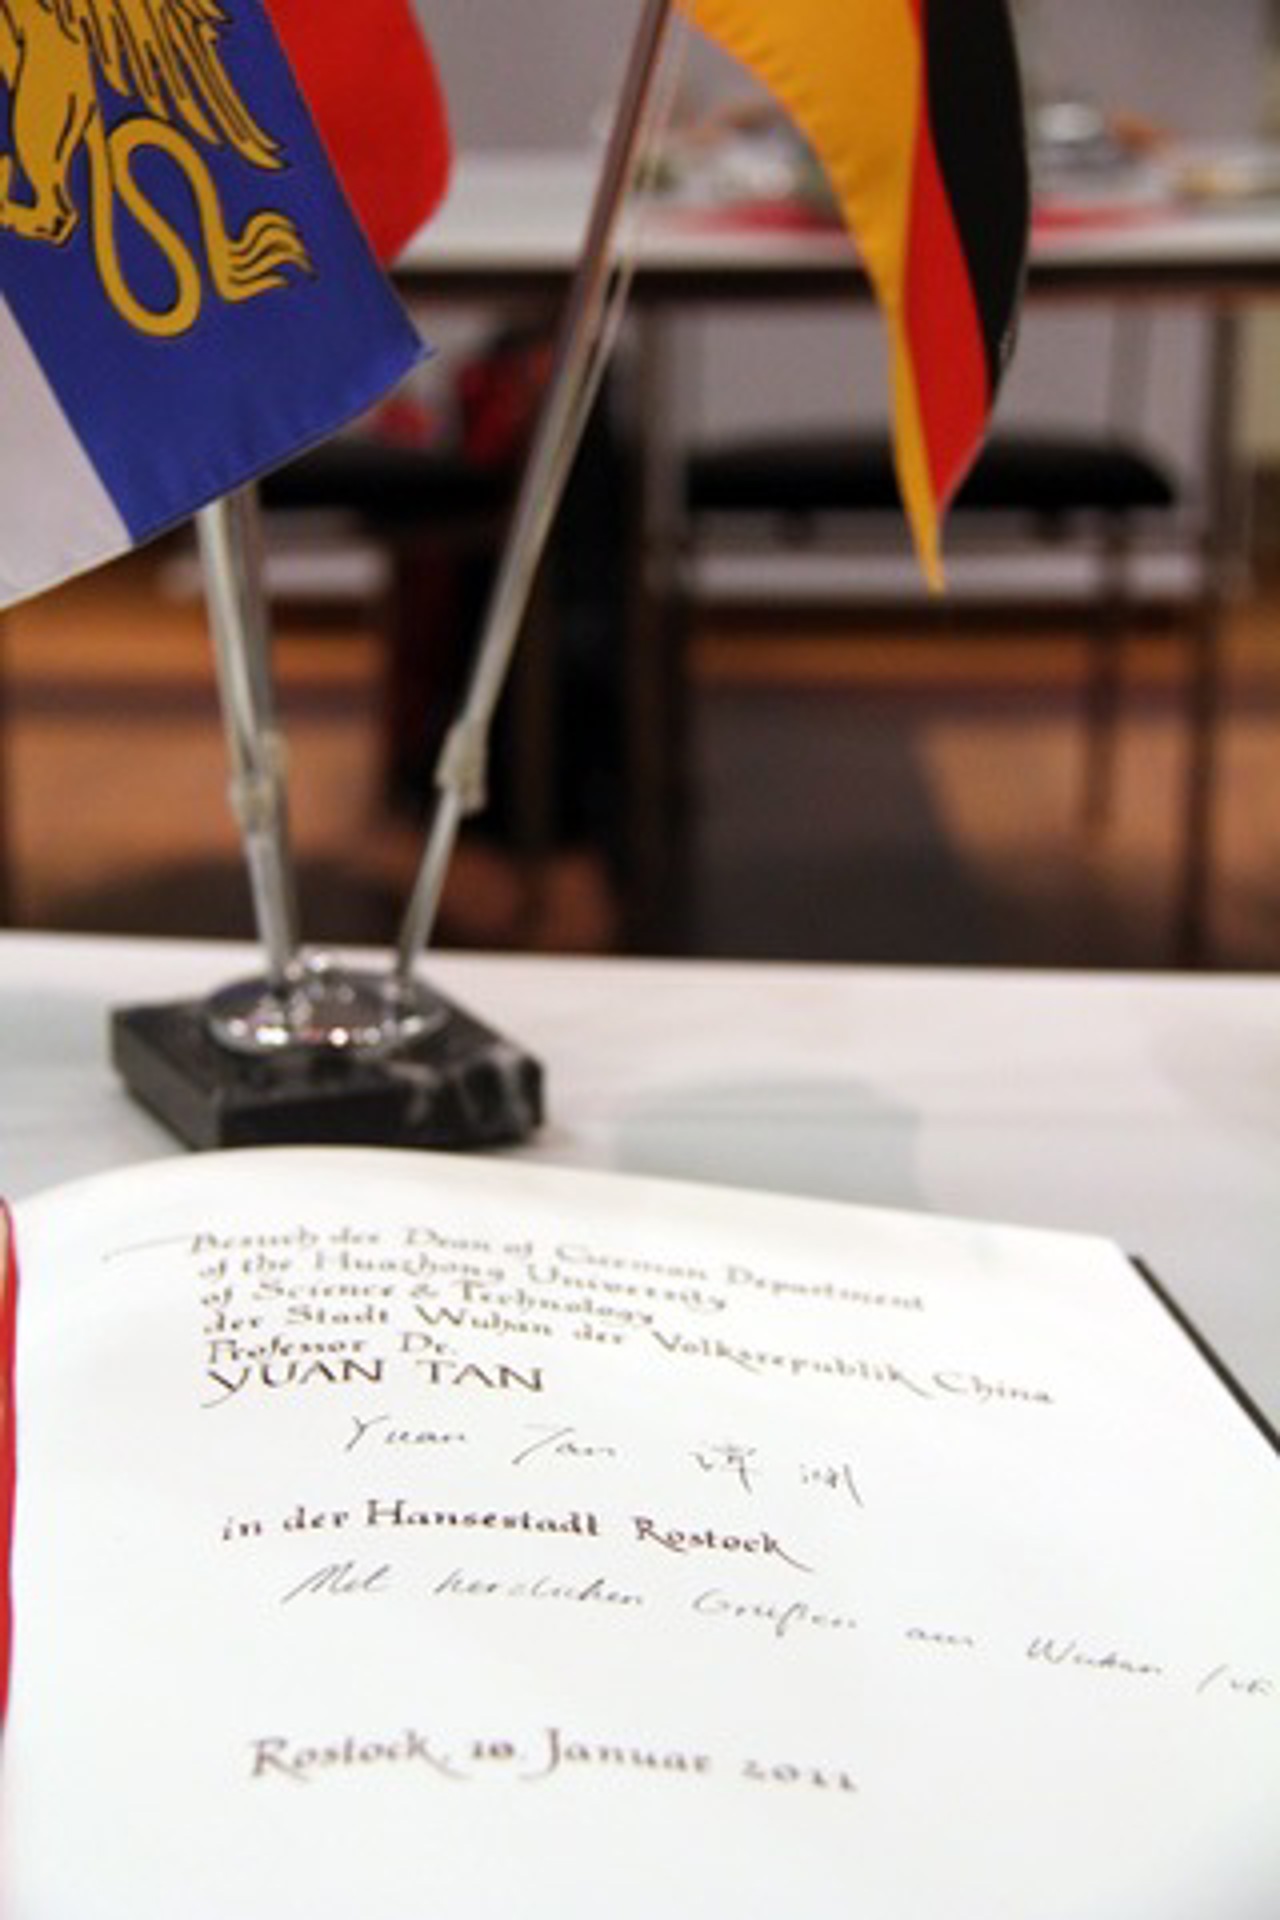 Besuch des Dean of German Department
of the Huazhong University
of Science & Technology
der Stadt Wuhan der Volksrepublik China
Professor Dr.
YUAN TAN
Yuan Tan 谭渊
in der Hansestadt Rostock
Mit herzlichen Grüßen aus Wuhan
Rostock, 10. Januar 2011